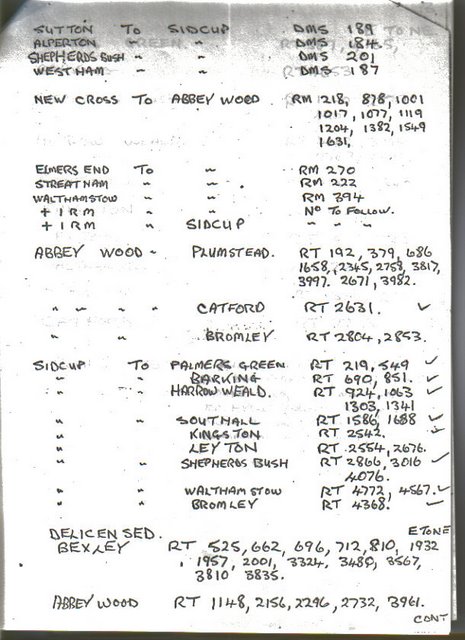 SUTTON TO SIDCUP DMS 189
ALPERTON " " DMS 184
SHEPHERDS BUSH " " DMS 201
WEST HAM " " DMS 187
NEW CROSS TO ABBEY WOOD RM 218, 878, 1001
1017, 1077, 1119
1204, 1382, 1549
1631,
ELMERS END TO " RM 270
STREATHAM " " RM 222
WALTHAMSTOW " " RM 394
+ 1 RM " " NO TO FOLLOW.
+ 1 RM " SIDCUP " " "
ABBEY WOOD - PLUMSTEAD. RT 192, 379, 686
1658, 2345, 2758, 3817,
3997. 2671, 3982.
" " " " CATFORD RT 2631. ✓
" " " BROMLEY RT 2804, 2853.
SIDCUP TO PALMERS GREEN RT 219, 549 ✓
" " BARKING RT 690, 851. ✓
" " HARROW WEALD. RT 924, 1063 ✓
1303, 1341
" " SOUTHALL RT 1586, 1688 ✓
" " KINGSTON RT 2542.
" " LEYTON RT 2554, 2676.
" " SHEPHERDS BUSH RT 2866, 3016 ✓
4076.
" " WALTHAMSTOW RT 4772, 4567 ✓
" " BROMLEY RT 4368. ✓
DELICENSED. ETONE
BEXLEY RT 525, 662, 696, 712, 810, 1932
, 1957, 2001, 3324, 3480, 3567,
3810 3835.
ABBEY WOOD RT 1148, 2156, 2296, 2732, 3961.
CONT